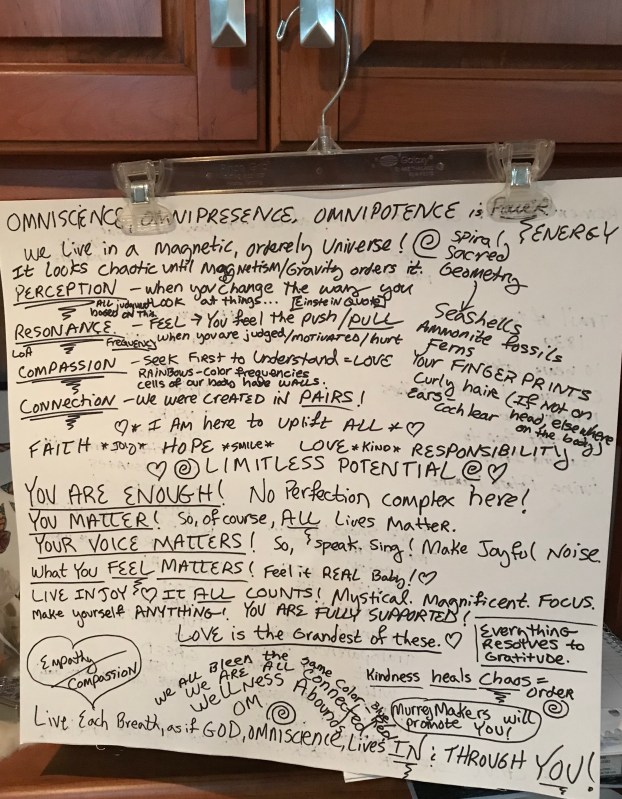 OMNISCIENCE, OMNIPRESENCE, OMNIPOTENCE is Power
ENERGY
we Live in a magnetic, orderely Universe! Spiral,
Sacred
Geometry
It Looks chaotic until Magnetism/Gravity orders it.
PERCEPTION - when you change the way you
LOOK at things... [Einstein Quote]
ALL judgment
based on this
RESONANCE - FEEL → You feel the push/PULL
LOA
Frequency when you are judged/motivated/hurt
COMPASSION - Seek First to Understand = LOVE
RAINBOWS - color frequencies
cells of our body have walls.
CONNECTION - we were created in PAIRS!
Seashells
Ammonite fossils
Ferns
Your FINGERPRINTS
Curly hair (If not on
head, elsewhere
on the body)
ears
Cochlear
* I Am here to Uplift ALL *
FAITH *JOLO* HOPE *SMILE* LOVE *KIND* RESPONSIBILITY
LIMITLESS POTENTIAL
YOU ARE ENOUGH! No Perfection complex here!
YOU MATTER! So, of course, ALL Lives Matter.
YOUR VOICE MATTERS! So, speak. Sing! Make Joyful Noise.
What You FEEL MATTERS! Feel it REAL Baby!
LIVE IN JOY It ALL COUNTS! Mystical. Magnificent. FOCUS.
Make yourself ANYTHING! YOU ARE FULLY SUPPORTED!
LOVE is the Grandest of these.
Everything
Resolves to
Gratitude.
Empathy
Compassion
We All Bleed the Same Color
We ARE ALL Connected
WELLNESS Abounds
OM
Kindness heals Chaos =
order
MurreyMakers will
promote You!
Live Each Breath, as if GOD, OMNISCIENCE, Lives IN & THROUGH YOU!